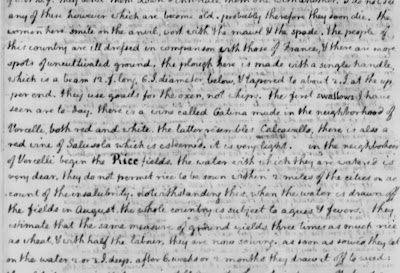 any of these however which are become old. probably therefore they soon die. the
women here smite on the anvil, work with the mawl & the spade. The people of
this country are ill dressed in comparison with those of France, & there are more
spots of uncultivated ground. the plough here is made with a single handle,
which is a beam 12.f. long, 6.I. diameter below, & tapered to about 2.I. at the up-
per end. they use goads for the oxen, not whips. the first swallows I have
seen are to-day. there is a wine called Gatina made in the neighborhood of
Vercelli, both red and white. the latter resembles Calcavallo. there is also a
red wine of Salusola which is esteemed. it is very light. in the neighborhood
of Vercelli begin the Rice fields. the water with which they are watered is
very dear. they do not permit rice to be sown within 2 miles of the cities on ac-
count of the insalubrity. notwithstanding this, when the water is drawn off
the fields in August, the whole country is subject to agues & fevers. they
estimate that the same measure of ground yields three times as much rice
as wheat, & with half the labour. they are now sowing. as soon as sowed they let
on the water 2. or 3.I. deep. after 6 weeks or 2 months they draw it off to weed: